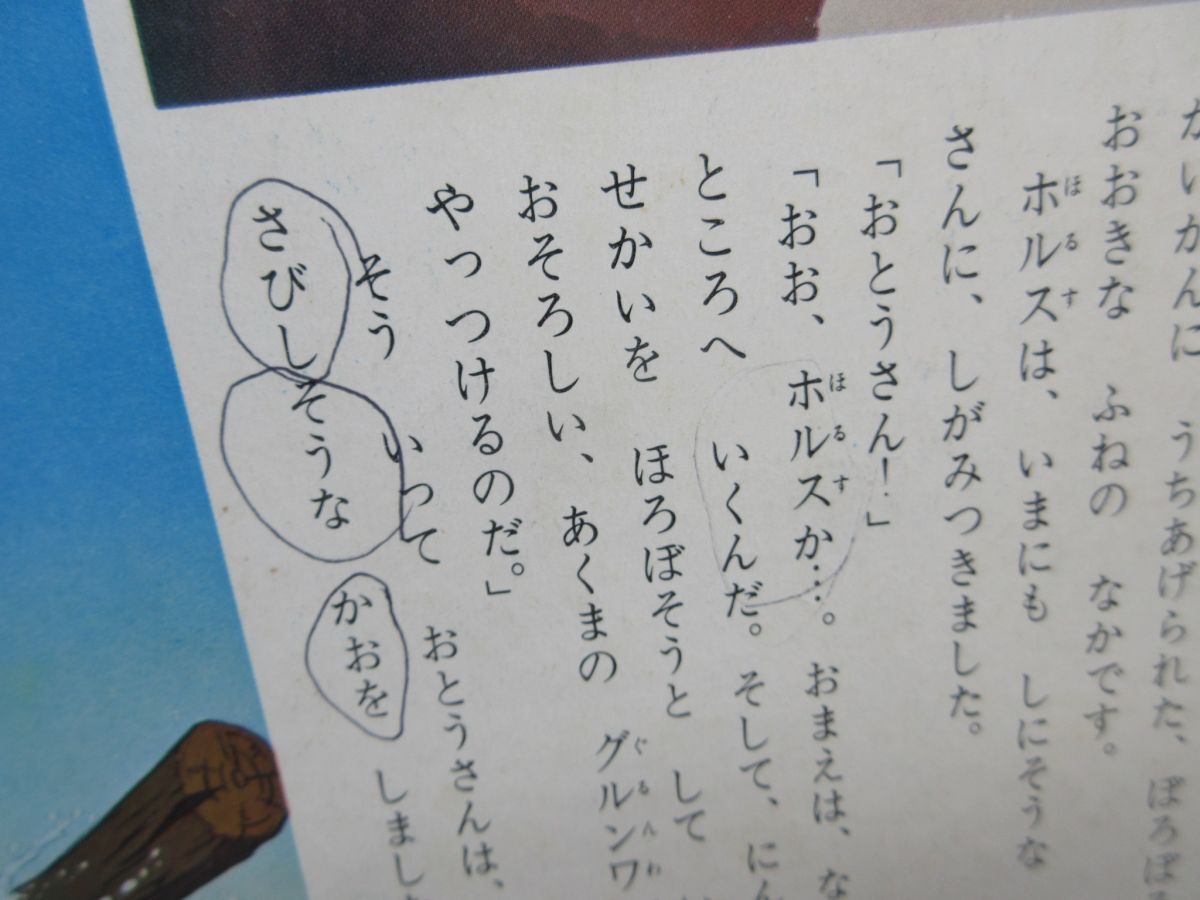 かいがんに うちあげられた、ぼろぼろ
おおきな ふねの なかです。
ホルスは、いまにも しにそうな
さんに、しがみつきました。
「おとうさん！」
「おお、ホルスか…。おまえは、な
ところへ いくんだ。そして、にん
せかいを ほろぼそうと して
おそろしい、あくまの グルンワ
やっつけるのだ。」
そう いって おとうさんは、
さびしそうな かおを しました